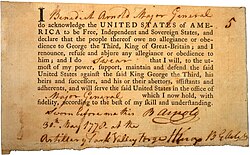 I Benedict Arnold Major General
do acknowledge the UNITED STATES of AME-
RICA to be Free, Independent and Sovereign States, and
declare that the people thereof owe no allegiance or obe-
dience to George the Third, King of Great-Britain; and I
renounce, refuse and abjure any allegiance or obedience to
him; and I do Swear that I will, to the ut-
most of my power, support, maintain and defend the said
United States against the said King George the Third, his
heirs and successors, and his or their abettors, assistants and
adherents, and will serve the said United States in the office of
Major General which I now hold, with
fidelity, according to the best of my skill and understanding.
Sworn before me this B Arnold
30th May 1778 at the
Artillery Park Valley Forge HKnox B G Artillery
5